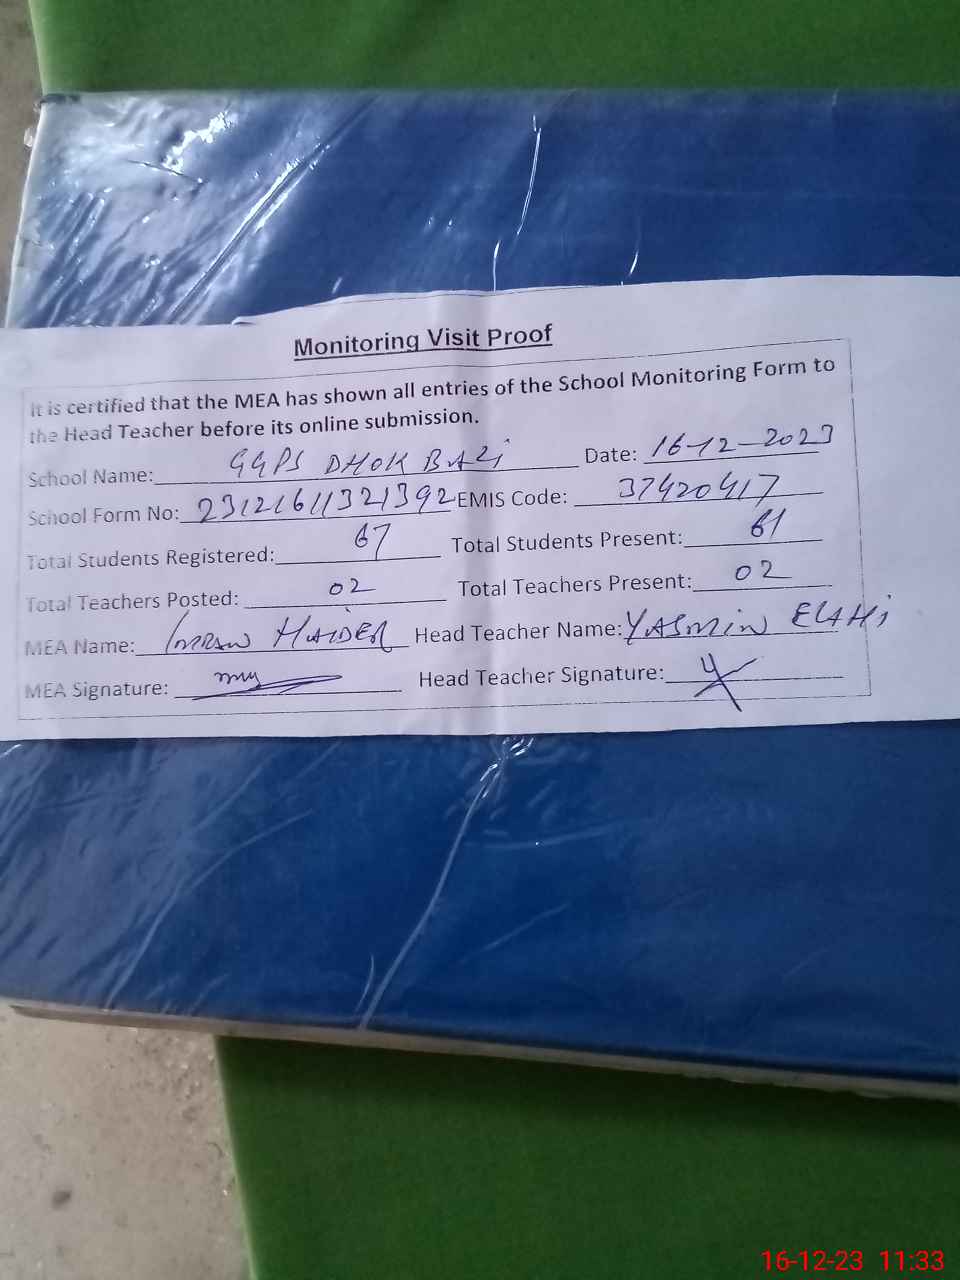 Monitoring Visit Proof
It is certified that the MEA has shown all entries of the School Monitoring Form to
the Head Teacher before its online submission.
School Name: GGPS DHOK BAZi Date: 16-12-2023
School Form No: 23121611321392 EMIS Code: 37420417
Total Students Registered: 67 Total Students Present: 61
Total Teachers Posted: 02 Total Teachers Present: 02
MEA Name: IMRAN HAIDER Head Teacher Name: YASMiN ELAHi
MEA Signature: Head Teacher Signature:
16-12-23 11:33